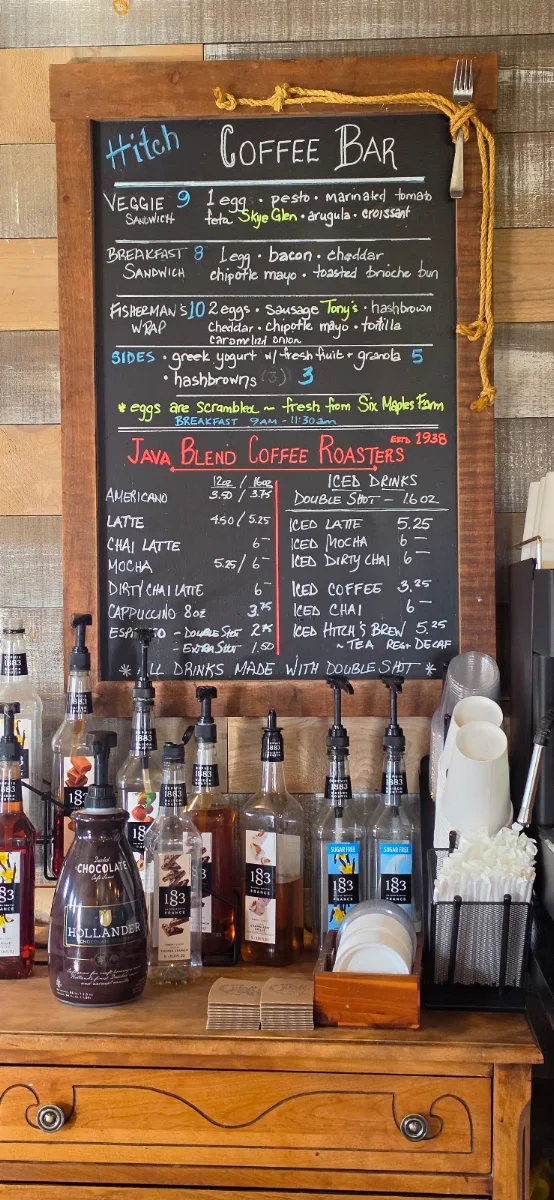 Hitch COFFEE BAR
VEGGIE 9 1 egg • pesto • marinated tomato
SANDWICH feta Skye Glen • arugula • croissant
BREAKFAST 8 1 egg • bacon • cheddar
SANDWICH chipotle mayo • toasted brioche bun
FISHERMAN'S 10 2 eggs • sausage Tony's • hashbrown
WRAP cheddar • chipotle mayo • tortilla
caramelized onion
SIDES • greek yogurt w/ fresh fruit + granola 5
• hashbrowns (3) 3
* eggs are scrambled ~ fresh from Six Maples Farm
BREAKFAST 9AM - 11:30am
JAVA BLEND COFFEE ROASTERS ESTD 1938
12oz / 16oz
AMERICANO 3.50 / 3.75
LATTE 4.50 / 5.25
CHAI LATTE 6-
MOCHA 5.25 / 6-
DIRTY CHAI LATTE 6-
CAPPUCCINO 8oz 3.75
- DOUBLE SHOT 2.75
- EXTRA SHOT 1.50
ICED DRINKS
DOUBLE SHOT - 16 OZ
ICED LATTE 5.25
ICED MOCHA 6-
ICED DIRTY CHAI 6-
ICED COFFEE 3.25
ICED CHAI 6-
ICED HITCH'S BREW 5.25
~ TEA REG + DECAF
* ALL DRINKS MADE WITH DOUBLE SHOT *
1883
1883
1883
1883
1883
1883
1883
1883
CHOCOLATE
Café Sauce
HOLLANDER
CHOCOLATE
1883
FRANCE
1883
FRANCE
1883
1883
FRANCE
SUGAR FREE
1883
FRANCE
SUGAR FREE
1883
FRANCE